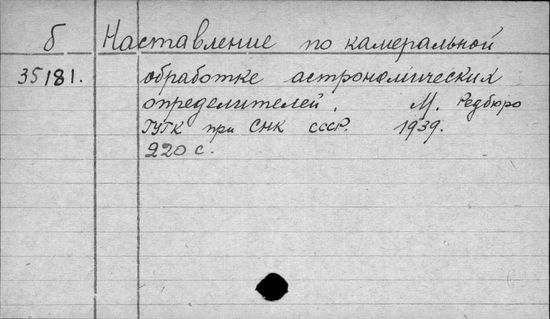 б Наставление по камеральной
35181. обработке астрономических
определителей. М. Редбюро
ГУГК при СНК СССР. 1939.
220 с.